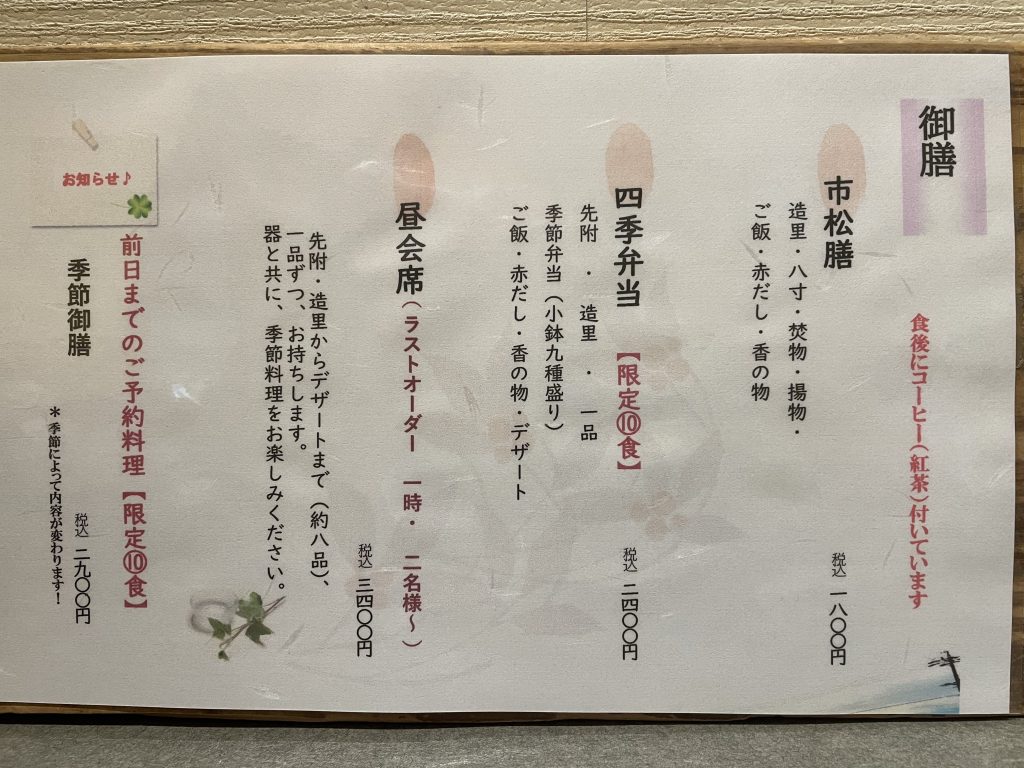 御膳
食後にコーヒー(紅茶)付いています
市松膳
造里・八寸・焚物・揚物・
ご飯・赤だし・香の物
税込 一八〇〇円
四季弁当 【限定⑩食】
先附 ・ 造里 ・ 一品
季節弁当(小鉢九種盛り)
ご飯・赤だし・香の物・デザート
税込 二四〇〇円
昼会席(ラストオーダー 一時・ 二名様〜)
税込 三四〇〇円
先附・造里からデザートまで(約八品)、
一品ずつ、お持ちします。
器と共に、季節料理をお楽しみください。
お知らせ♪
前日までのご予約料理【限定⑩食】
季節御膳
税込 二九〇〇円
*季節によって内容が変わります!